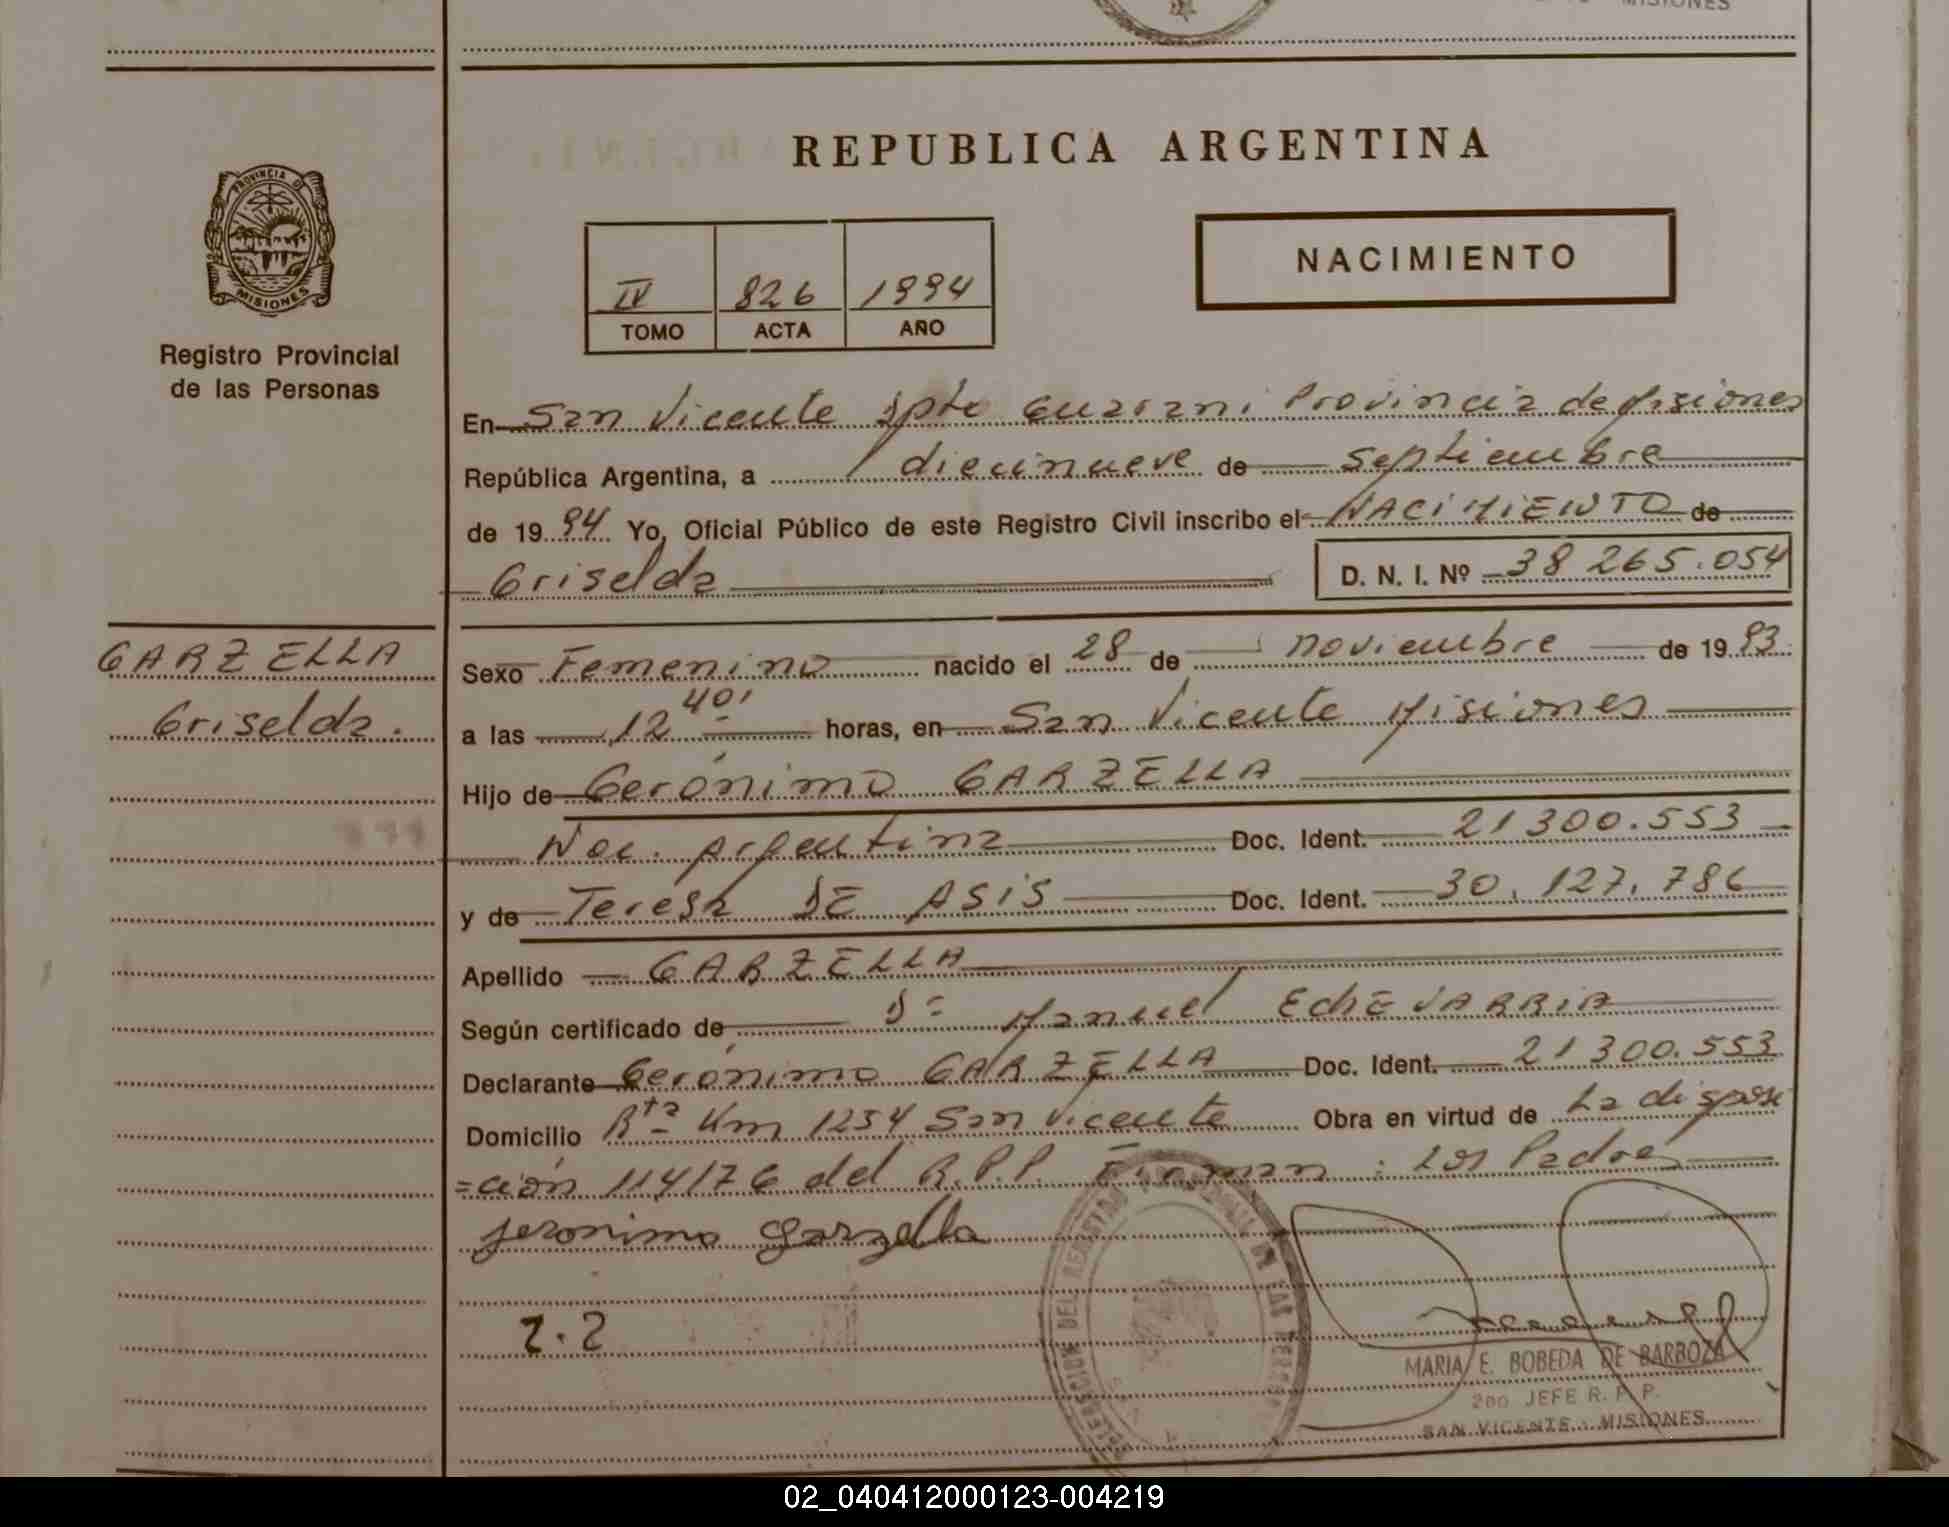 MISIONES
REPUBLICA ARGENTINA
PROVINCIA DE
MISIONES
Registro Provincial
de las Personas
IV 826 1994
TOMO ACTA AÑO
NACIMIENTO
En San Vicente Dpto Guarani Provincia de Misiones
República Argentina, a diecinueve de Septiembre
de 1994 Yo, Oficial Público de este Registro Civil inscribo el NACIMIENTO de
Griselda D. N. I. Nº 38 265.054
GARZELLA
Griselda.
Sexo Femenino nacido el 28 de noviembre de 1993
a las 12 40' horas, en San Vicente Misiones
Hijo de Gerónimo GARZELLA
Nac. Argentina Doc. Ident. 21 300.553
y de Teresa DE ASIS Doc. Ident. 30.127.786
Apellido GARZELLA
Según certificado de Dº Manuel EchEVARRIA
Declarante Gerónimo GARZELLA Doc. Ident. 21 300.553
Domicilio Rta Km 1254 San Vicente Obra en virtud de La disposi
=ción 114/76 del R.P.P. Firman: Los Padres
jeronimo garzella
2.2
MARIA E. BOBEDA DE BARBOZA
2do JEFE R. P. P.
SAN VICENTE - MISIONES
02_040412000123-004219